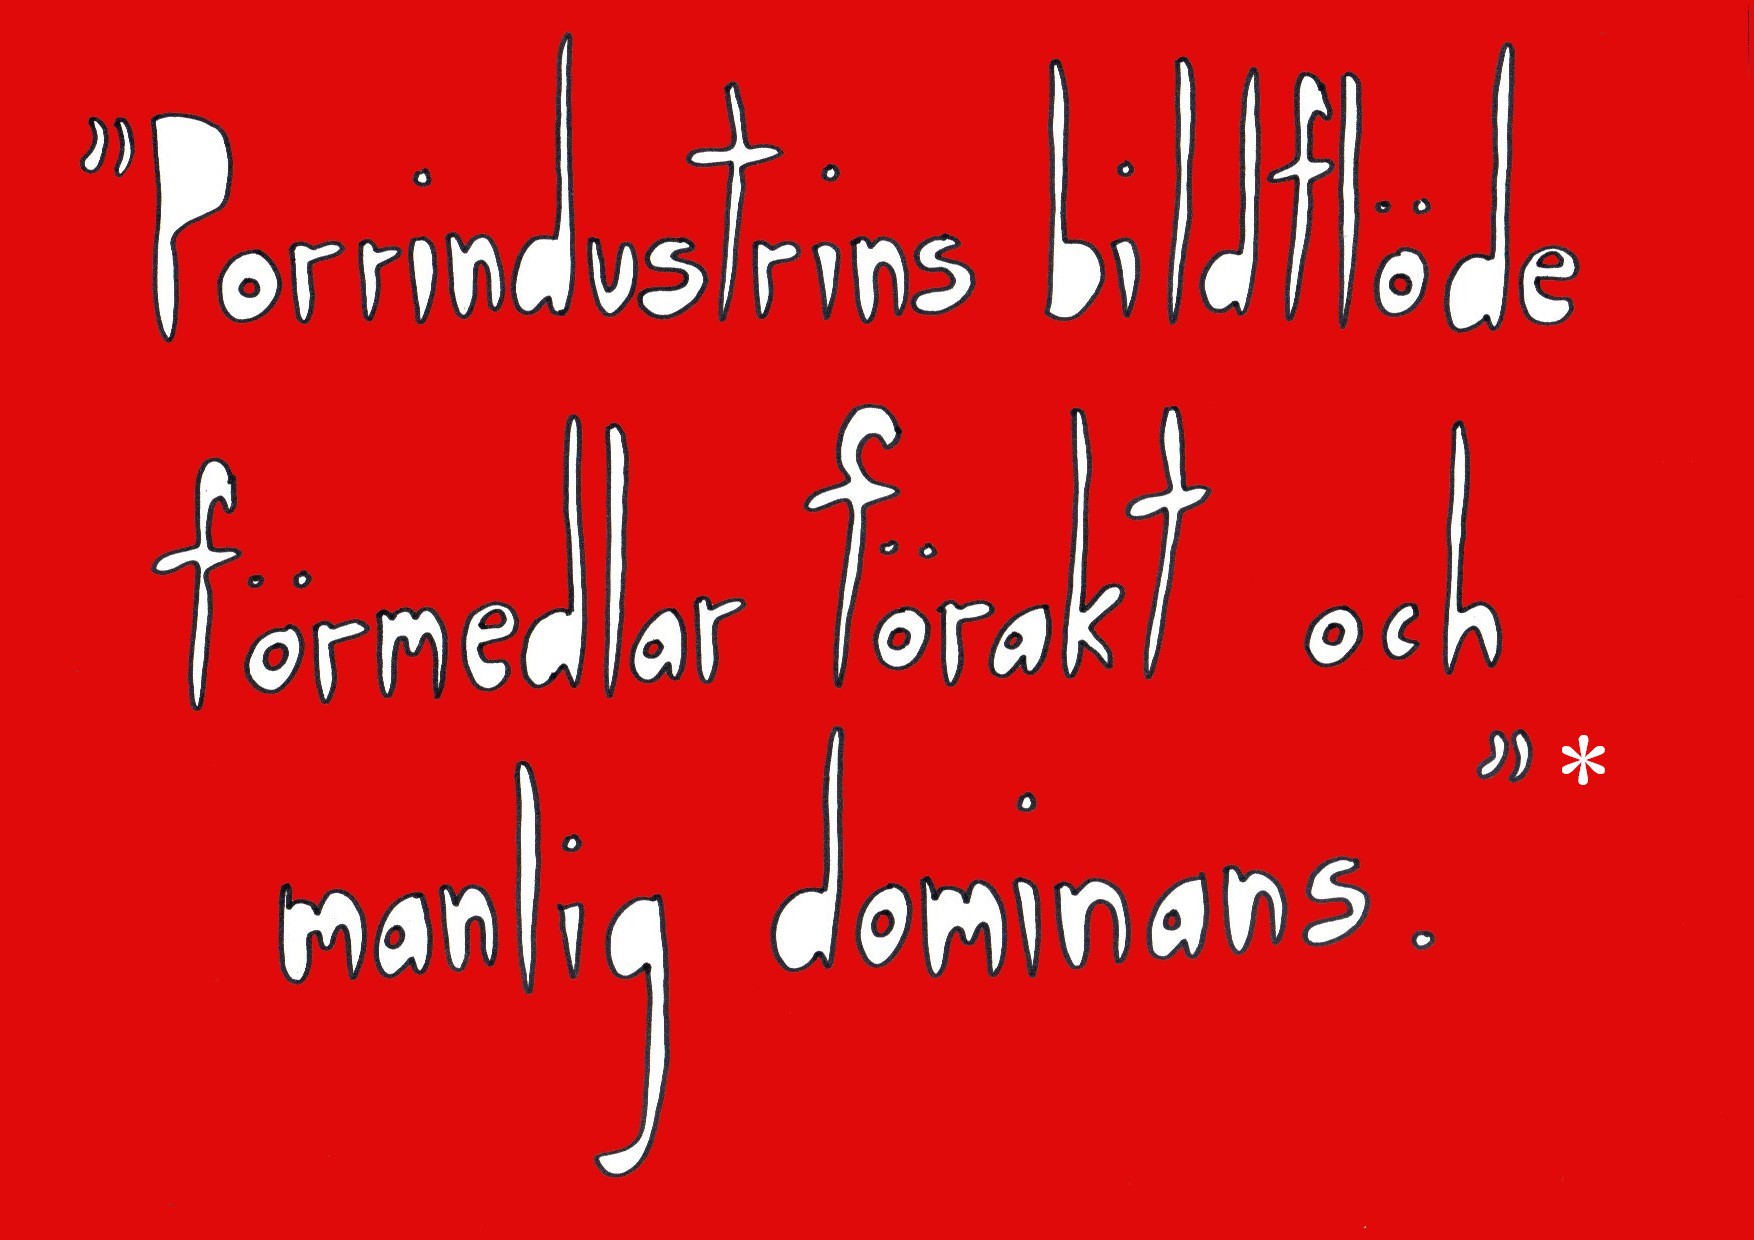 ”Porrindustrins bildflöde
förmedlar förakt och
manlig dominans.”*